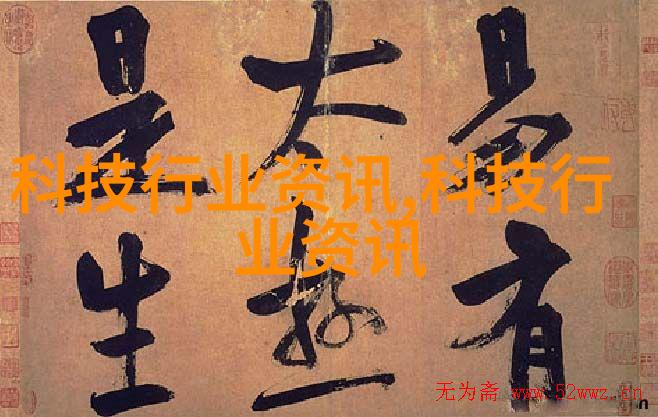 易有
太極
是生
科技行业资讯,科技行
业资讯
无为斋 www.52wwz.cn